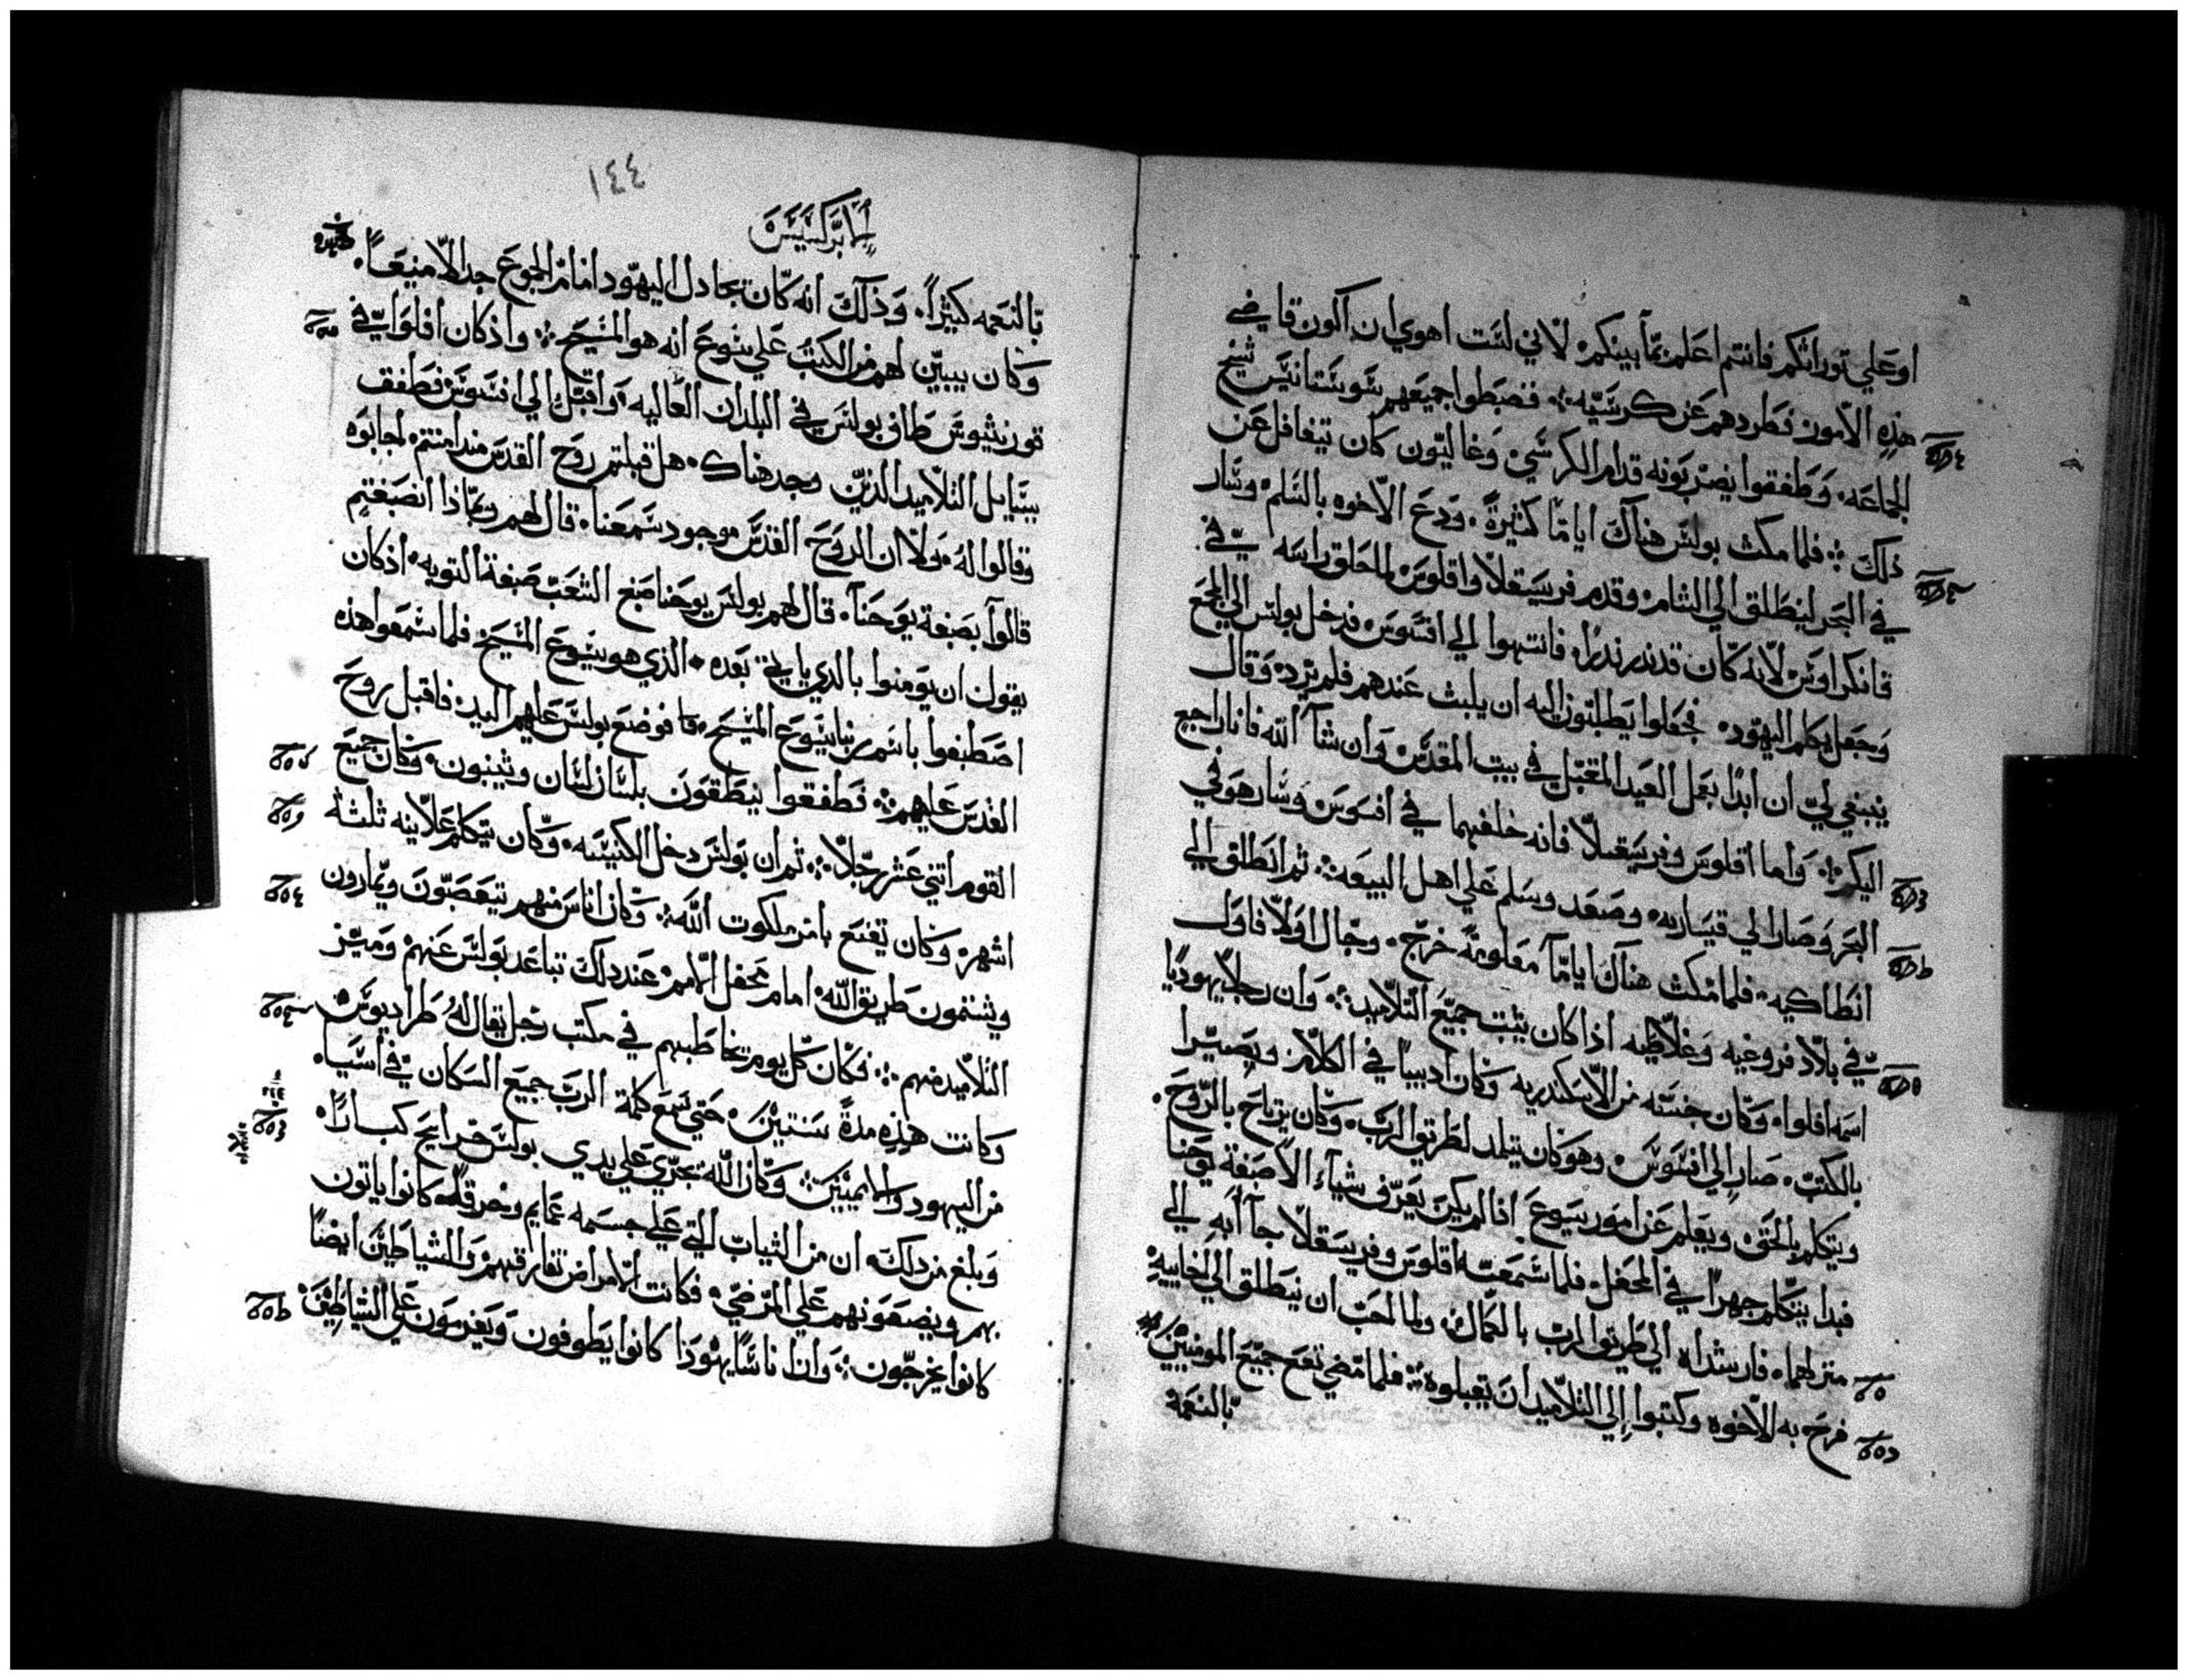 او علي توراتكم فانتم اعلم بما بينكم لاني لست اهوي ان اكون قاضي
هذه الامور فطردهم عن كرسيه فضبطوا جميعهم سوستانيس شيخ
الجماعه وطفقوا يضربونه قدام الكرسي وغاليون كان يتغافل عن
ذلك فلما مكث بولس هناك اياما كثيرة ودع الاخوه بالسلم وسار
في البحر لينطلق الي الشام وقدم فريسقلا واقلوس لما حلق راسه في
قانكراوس لانه كان قد نذر نذرا فانتهوا الي افسوس فدخل بولس الي المجمع
وجعل يكلم اليهود فجعلوا يطلبون اليه ان يلبث عندهم فلم يرد وقال
ينبغي لي ان ابدا بعمل العيد المقبل في بيت المقدس وان شآ الله فانا راجع
اليكم واما اقلوس وفريسقلا فانه خلفهما في افسوس وسار هو في
البحر وصار الي قيساريه وصعد وسلم علي اهل البيعه ثم انطلق الي
انطاكيه فلما مكث هناك اياما معلومة خرج وجال اولا فاول
في بلاد فروغيه وغلاطيه اذ كان يثبت جميع التلاميد وان رجلا يهوديا
اسمه افلوا وكان جنسه من الاسكندريه وكان اديبا في الكلام وبصيرا
بالكتب صار الي افسوس وهو كان يتلمد لطريق الرب وكان يرتاح بالروح
ويتكلم بالحق ويعلم عن امور يسوع اذا لم يكن يعرف شيآء الا صبغة يوحنا
فبدا يتكلم جهرا في المحفل فلما سمعته اقلوس وفريسقلا جآ آبه الي
منزلهما فارشداه الي طريق الرب بالكمال ولما احب ان ينطلق الي اخاييه
فرح به الاخوه وكتبوا الي التلاميد ان يقبلوه فلما مضي نفع جميع المومنين
بالنعمه
١٤٤
الابركسيس
بالنعمه كثيرا وذلك انه كان يجادل اليهود امام الجموع جدالا منيعا
وكان يبين لهم من الكتب علي يسوع انه هو المسيح واذ كان افلوا في
قورنثيوس طاف بولس في البلدان العاليه واقبل الي افسوس فطفق
يسايل التلاميد الذين وجد هناك هل قبلتم روح القدس منذ امنتم اجابوه
وقالوا له ولا ان الروح القدس موجود سمعنا قال لهم وبماذا انصبغتم
قالوا بصبغة يوحنا قال لهم بولس يوحنا صبغ الشعب صبغة التوبه اذ كان
يقول ان يومنوا بالدي ياتي بعده الذي هو يسوع المسيح فلما سمعوا هذه
اصطبغوا باسم ربنا يسوع المسيح فوضع بولس عليهم اليد فاقبل روح
القدس عليهم فطفقوا ينطقون بلسان لسان ويتنبون وكان جميع
القوم اثني عشر رجلا ثم ان بولس دخل الكنيسه وكان يتكلم علانيه ثلثة
اشهر وكان يقنع بامر ملكوت الله وكان اناس منهم يتعصبون ويمارون
ويشتمون طريق الله امام محفل الامم عند ذلك تباعد بولس عنهم وميز
التلاميد منهم فكان كل يوم يخاطبهم في مكتب رجل يقال له طراديوس
وكانت هذه مدة سنتين حتي سمع كلمة الرب جميع السكان في اسيا
من اليهود والاميين وكان الله يجري علي يدي بولس جرايح كبارا
وبلغ من ذلك ان من الثياب التي علي جسمه عمايم وخرق كانوا ياتون
بهم ويضعونهم علي المرضي فكانت الامراض تفارقهم والشياطين ايضا
كانوا يخرجون وان اناسا يهودا كانوا يطوفون ويعزمون علي الشياطين